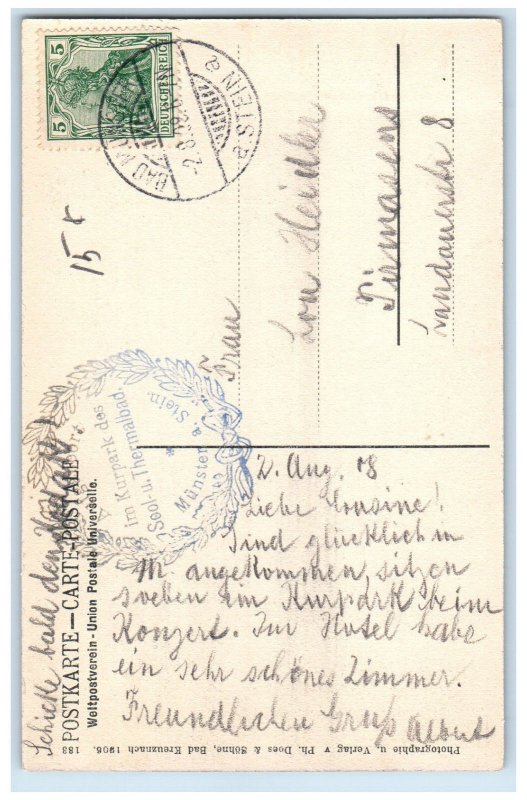 5
5
DEUTSCHES REICH
STEIN a
2.8.08
15
POSTKARTE—CARTE-POSTALE
Weltpostverein - Union Postale Universelle.
Im Kurpark des
Sool- u. Thermalbad
Münster a. Stein.
Frau
Lou Heidler
Pirmasens
Landauerstr 8
2. Aug. 08
Liebe Cousine!
Sind glücklich in
M. angekommen, sitzen
soeben im Kurpark beim
Konzert. Im Hotel habe
ein sehr schönes Zimmer.
Freundlichen Gruß Albert
Schicke bald den
Photographie u. Verlag v Ph. Does & Söhne, Bad Kreuznach 1906. 183